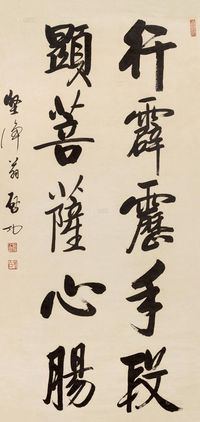 行霹靂手段
顯菩薩心腸
堅淨翁啟功